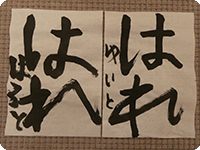 はれ
ゆいと
はれ